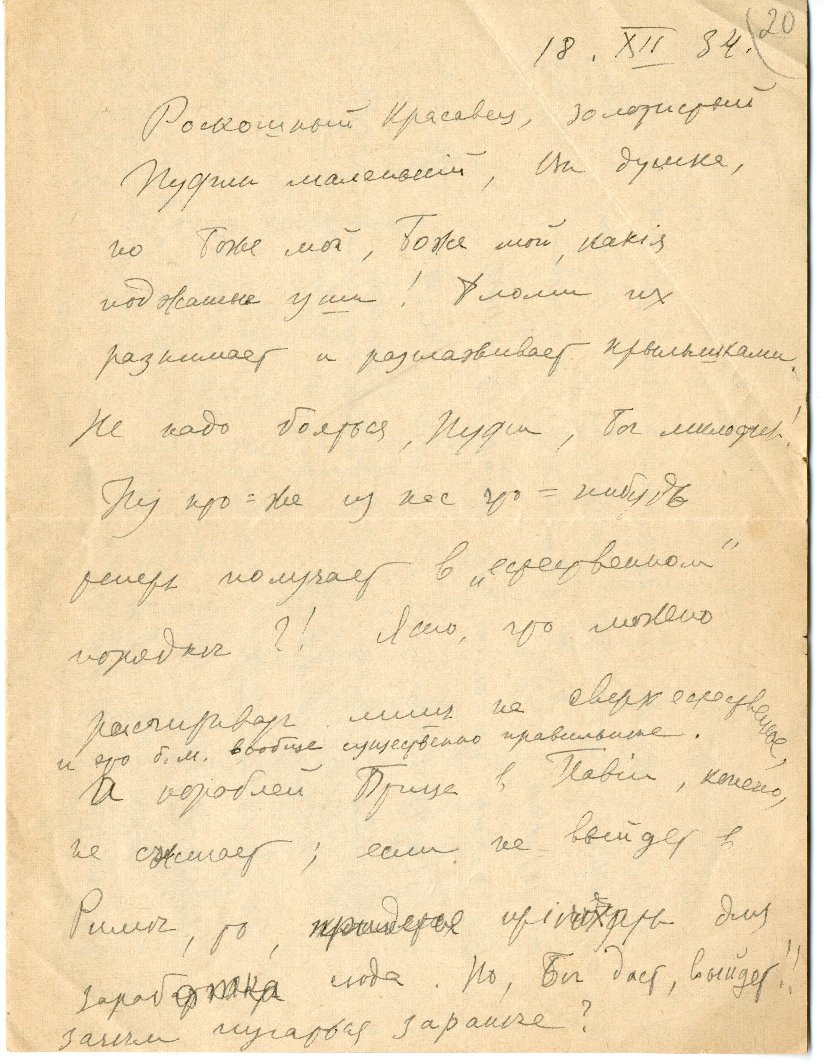 20
18. XII 34.
Роскошный Красавец, золотистый
Пуфли маленькій, Ви душка,
но Боже мой, Боже мой, какія
поджатые уши!
разнимает и разглаживает крылышками.
Не надо бояться, Пуфи, Бог милостив!
Ну кто=же из нас что=нибудь
теперь получает в „естественном"
порядкѣ?! Ясно, что можно
расчитывать лишь на сверхестественное,
и это б.м. вообще существенно правильнѣе.
А кораблей Птица в Павіи, конечно,
не сжигает; если не выйдет в
Римѣ, то, пріѣхать для
заработка сюда. Но, Бог даст, выйдет!!
зачѣм пугаться заранѣе?